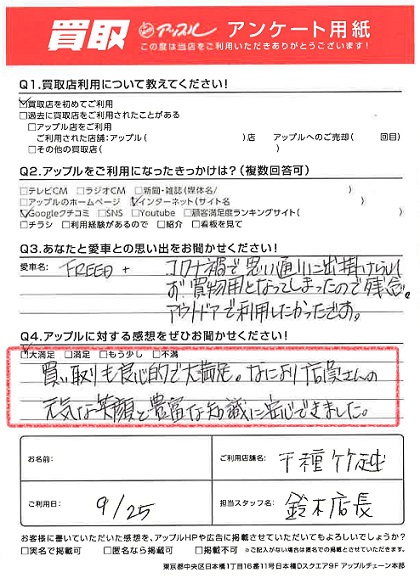 買取 アップル アンケート用紙
この度は当店をご利用いただきありがとうございます！
Q1.買取店利用について教えてください！
☑買取店を初めてご利用
□過去に買取店をご利用されたことがある
□アップル店をご利用
ご利用された店舗:アップル( )店 アップルへのご売却( 回目)
□その他の買取店( )
Q2.アップルをご利用になったきっかけは？(複数回答可)
□テレビCM □ラジオCM □新聞・雑誌(媒体名/ )
□アップルのホームページ ☑インターネット(サイト名 )
☑Googleクチコミ □SNS □Youtube □顧客満足度ランキングサイト( )
□チラシ □利用経験があるので □紹介 □看板を見て
Q3.あなたと愛車との思い出をお聞かせください！
愛車名: FREED + コロナ禍で思い通りに出掛けられ
ず お買物用となってしまったので残念。
アウトドアで利用したかったです。
Q4.アップルに対する感想をぜひお聞かせください！
☑大満足 □満足 □もう少し □不満
買い取りも良心的で大満足。なにより店員さんの
元気な笑顔と豊富な知識に安心できました。
お名前:
ご利用店舗名: 千種竹越
ご利用日: 9/25
担当スタッフ名: 鈴木店長
お客様に書いていただいた感想を、アップルHPや広告に掲載させていただいてもよろしいでしょうか？
□実名で掲載可 □匿名なら掲載可 □掲載不可 ※ご記入がない場合は匿名での掲載とさせていただきます。
東京都中央区日本橋1丁目16番11号日本橋Dスクエア9F アップルチェーン本部